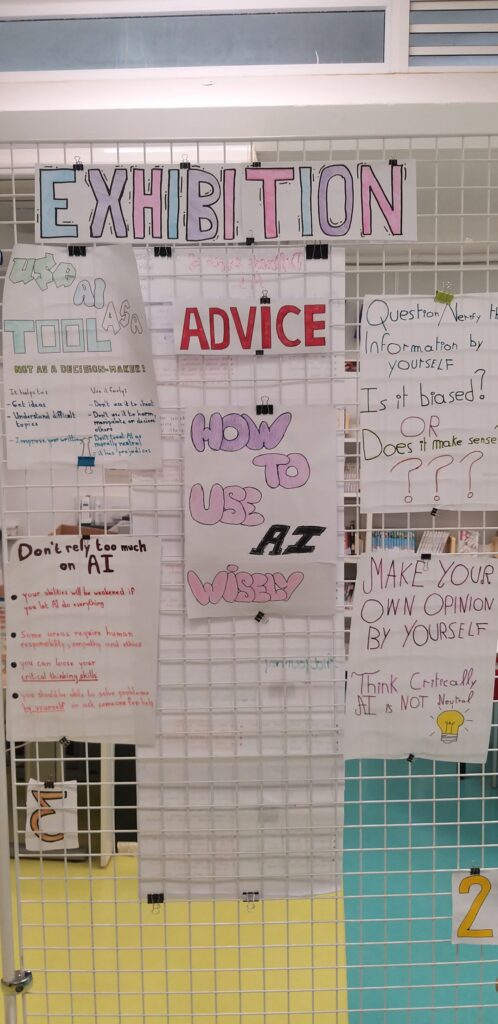 EXHIBITION
USE
AI
AS A
TOOL
NOT AS A DECISION-MAKER!
It helps to:
- Get ideas
- Understand difficult
topics
- Improve your writing
Use it fairly:
- Don't use it to cheat
- Don't use it to harm,
manipulate or deceive
others
- Don't treat AI as
morally neutral
it has prejudices
ADVICE
HOW
TO
USE
AI
WISELY
Question/Verify
Information by
YOURSELF
Is it biased?
OR
Does it make sense
???
Don't rely too much
on AI
your abilities will be weakened if
you let AI do everything
Some areas require human
responsibility, empathy and ethics
you can loose your
critical thinking skills
you should be able to solve problems
by yourself or ask someone for help
MAKE YOUR
OWN OPINION
BY YOURSELF
Think Critically
AI is NOT Neutral
2